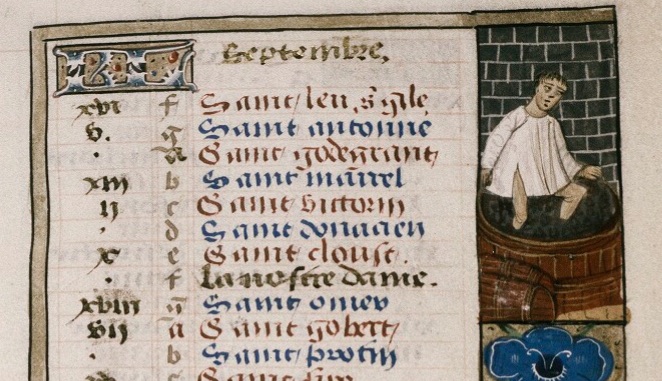 KL Septembre.
xvi f Saint leu. s. gile
v. g Saint antonne
. A Saint godegrant
xiii b Saint
ii c Saint victorin
. d Saint donacien
x e Saint cloust
. f La nostre dame.
xviii g Saint omer
vii a Saint gobert
. b Saint prothin
c Saint